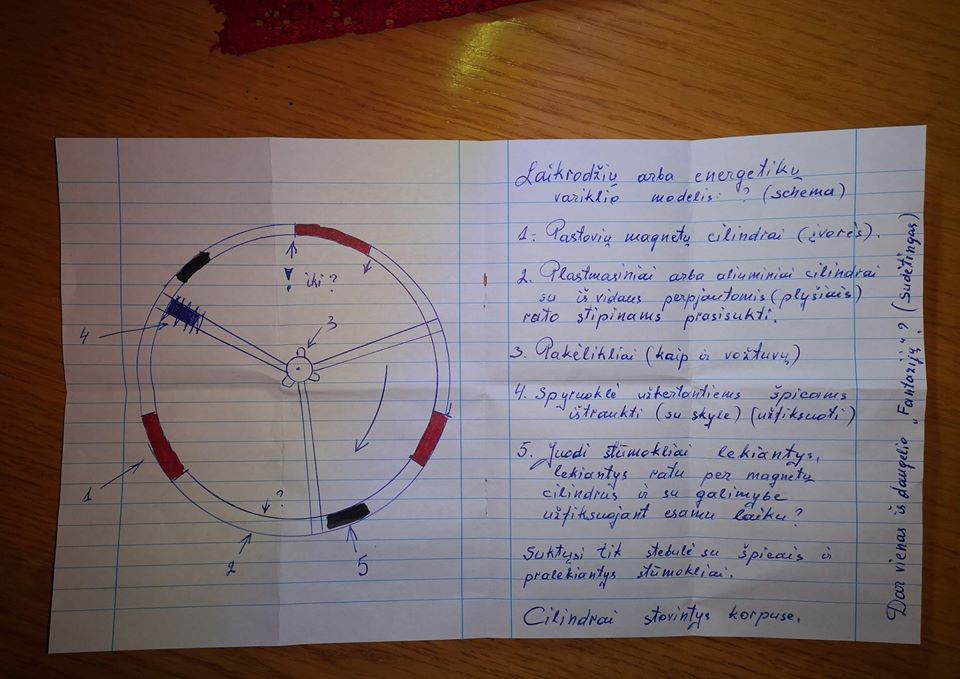 Laikrodžių arba energetikų
variklio modelis: ? (schema)
1. Pastovių magnetų cilindrai (įvorės).
2. Plastmasiniai arba aliuminiai cilindrai
su iš vidaus perpjautomis (plyšiais)
rato stipinams prasisukti.
3. Pakėlikliai (kaip ir vožtuvų)
4. Spyruoklė užkertantiems špicams
ištraukti (su skyle) (užfiksuoti)
5. Juodi stūmokliai lekiantys,
lekiantys ratu per magnetų
cilindrus ir su galimybe
užfiksuojant esamu laiku?
Suktųsi tik stebulė su špicais ir
pralekiantys stūmokliai.
Cilindrai stovintys korpuse.
Dar vienas iš daugelio „Fantazijų"? (Sudėtingas)
iki?
3
4
1
?
2
5